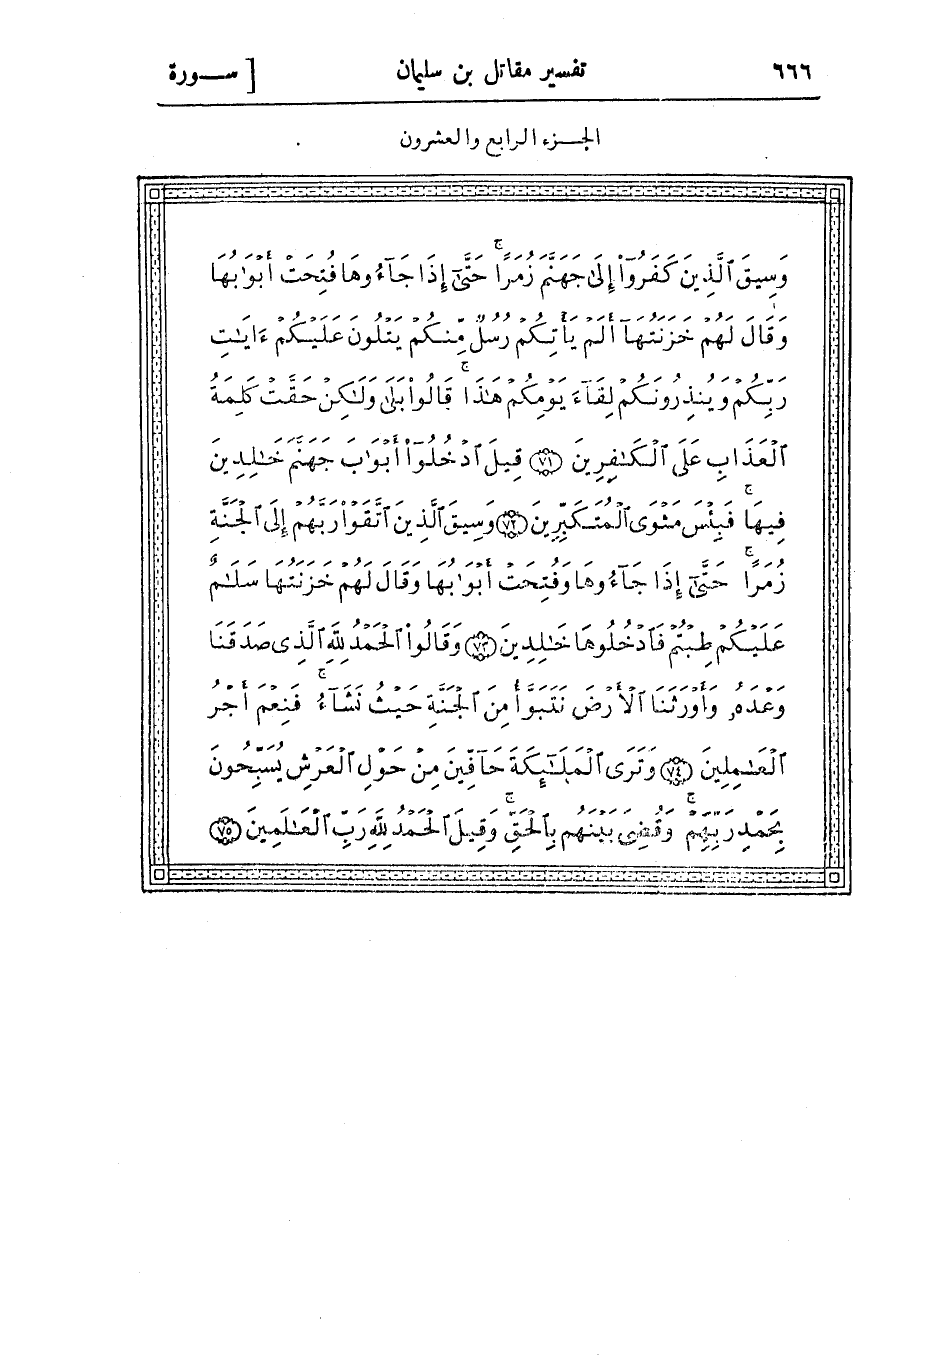 ٦٦٦ تفسير مقاتل بن سليمان [ سـورة
الجـزء الرابع والعشرون
وَسِيقَ ٱلَّذِينَ كَفَرُوٓاْ إِلَىٰ جَهَنَّمَ زُمَرًاۚ حَتَّىٰٓ إِذَا جَآءُوهَا فُتِحَتْ أَبْوَٰبُهَا
وَقَالَ لَهُمْ خَزَنَتُهَآ أَلَمْ يَأْتِكُمْ رُسُلٌ مِّنكُمْ يَتْلُونَ عَلَيْكُمْ ءَايَـٰتِ
رَبِّكُمْ وَيُنذِرُونَكُمْ لِقَآءَ يَوْمِكُمْ هَـٰذَاۚ قَالُواْ بَلَىٰ وَلَـٰكِنْ حَقَّتْ كَلِمَةُ
ٱلْعَذَابِ عَلَى ٱلْكَـٰفِرِينَ ﴿٧١﴾ قِيلَ ٱدْخُلُوٓاْ أَبْوَٰبَ جَهَنَّمَ خَـٰلِدِينَ
فِيهَاۚ فَبِئْسَ مَثْوَى ٱلْمُتَكَبِّرِينَ ﴿٧٢﴾ وَسِيقَ ٱلَّذِينَ ٱتَّقَوْاْ رَبَّهُمْ إِلَى ٱلْجَنَّةِ
زُمَرًاۚ حَتَّىٰٓ إِذَا جَآءُوهَا وَفُتِحَتْ أَبْوَٰبُهَا وَقَالَ لَهُمْ خَزَنَتُهَا سَلَـٰمٌ
عَلَيْكُمْ طِبْتُمْ فَٱدْخُلُوهَا خَـٰلِدِينَ ﴿٧٣﴾ وَقَالُواْ ٱلْحَمْدُ لِلَّهِ ٱلَّذِى صَدَقَنَا
وَعْدَهُۥ وَأَوْرَثَنَا ٱلْأَرْضَ نَتَبَوَّأُ مِنَ ٱلْجَنَّةِ حَيْثُ نَشَآءُۚ فَنِعْمَ أَجْرُ
ٱلْعَـٰمِلِينَ ﴿٧٤﴾ وَتَرَى ٱلْمَلَـٰٓئِكَةَ حَآفِّينَ مِنْ حَوْلِ ٱلْعَرْشِ يُسَبِّحُونَ
بِحَمْدِ رَبِّهِمْۚ وَقُضِىَ بَيْنَهُم بِٱلْحَقِّۚ وَقِيلَ ٱلْحَمْدُ لِلَّهِ رَبِّ ٱلْعَـٰلَمِينَ ﴿٧٥﴾